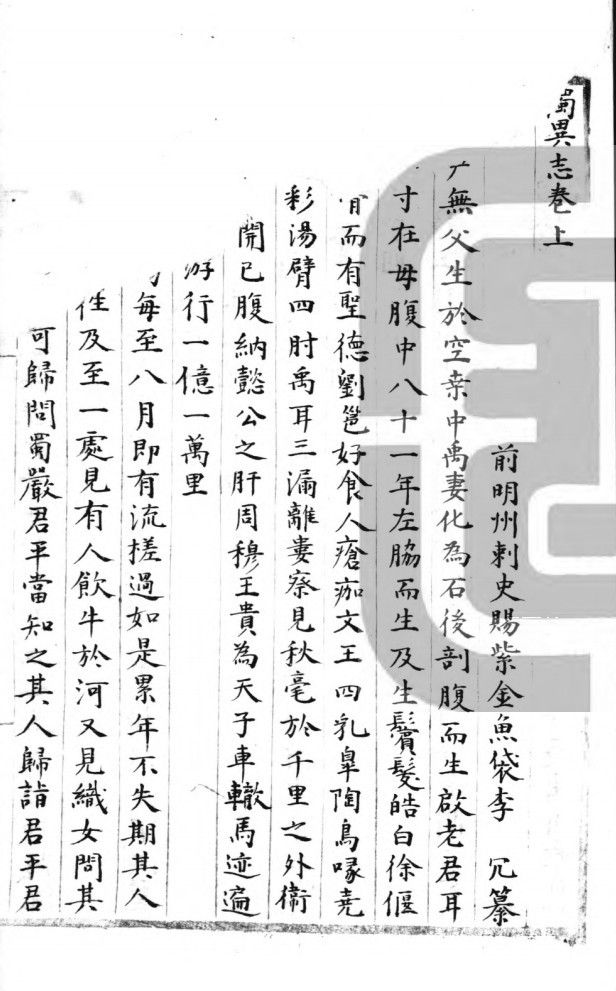 異志卷上
前明州刺史賜紫金魚袋李 冗纂
無父生於空桒中禹妻化為石後剖腹而生啟老君耳
寸在母腹中八十一年左脇而生及生鬢髮皓白徐偃
而有聖德劉邕好食人瘡痂文王四乳臯陶鳥喙堯
彩湯臂四肘禹耳三漏離婁察見秋毫於千里之外衛
開已腹納懿公之肝周穆王貴為天子車轍馬迹遍
游行一億一萬里
每至八月即有流槎過如是累年不失期其人
及至一處見有人飲牛於河又見織女問其
可歸問蜀嚴君平當知之其人歸詣君平君